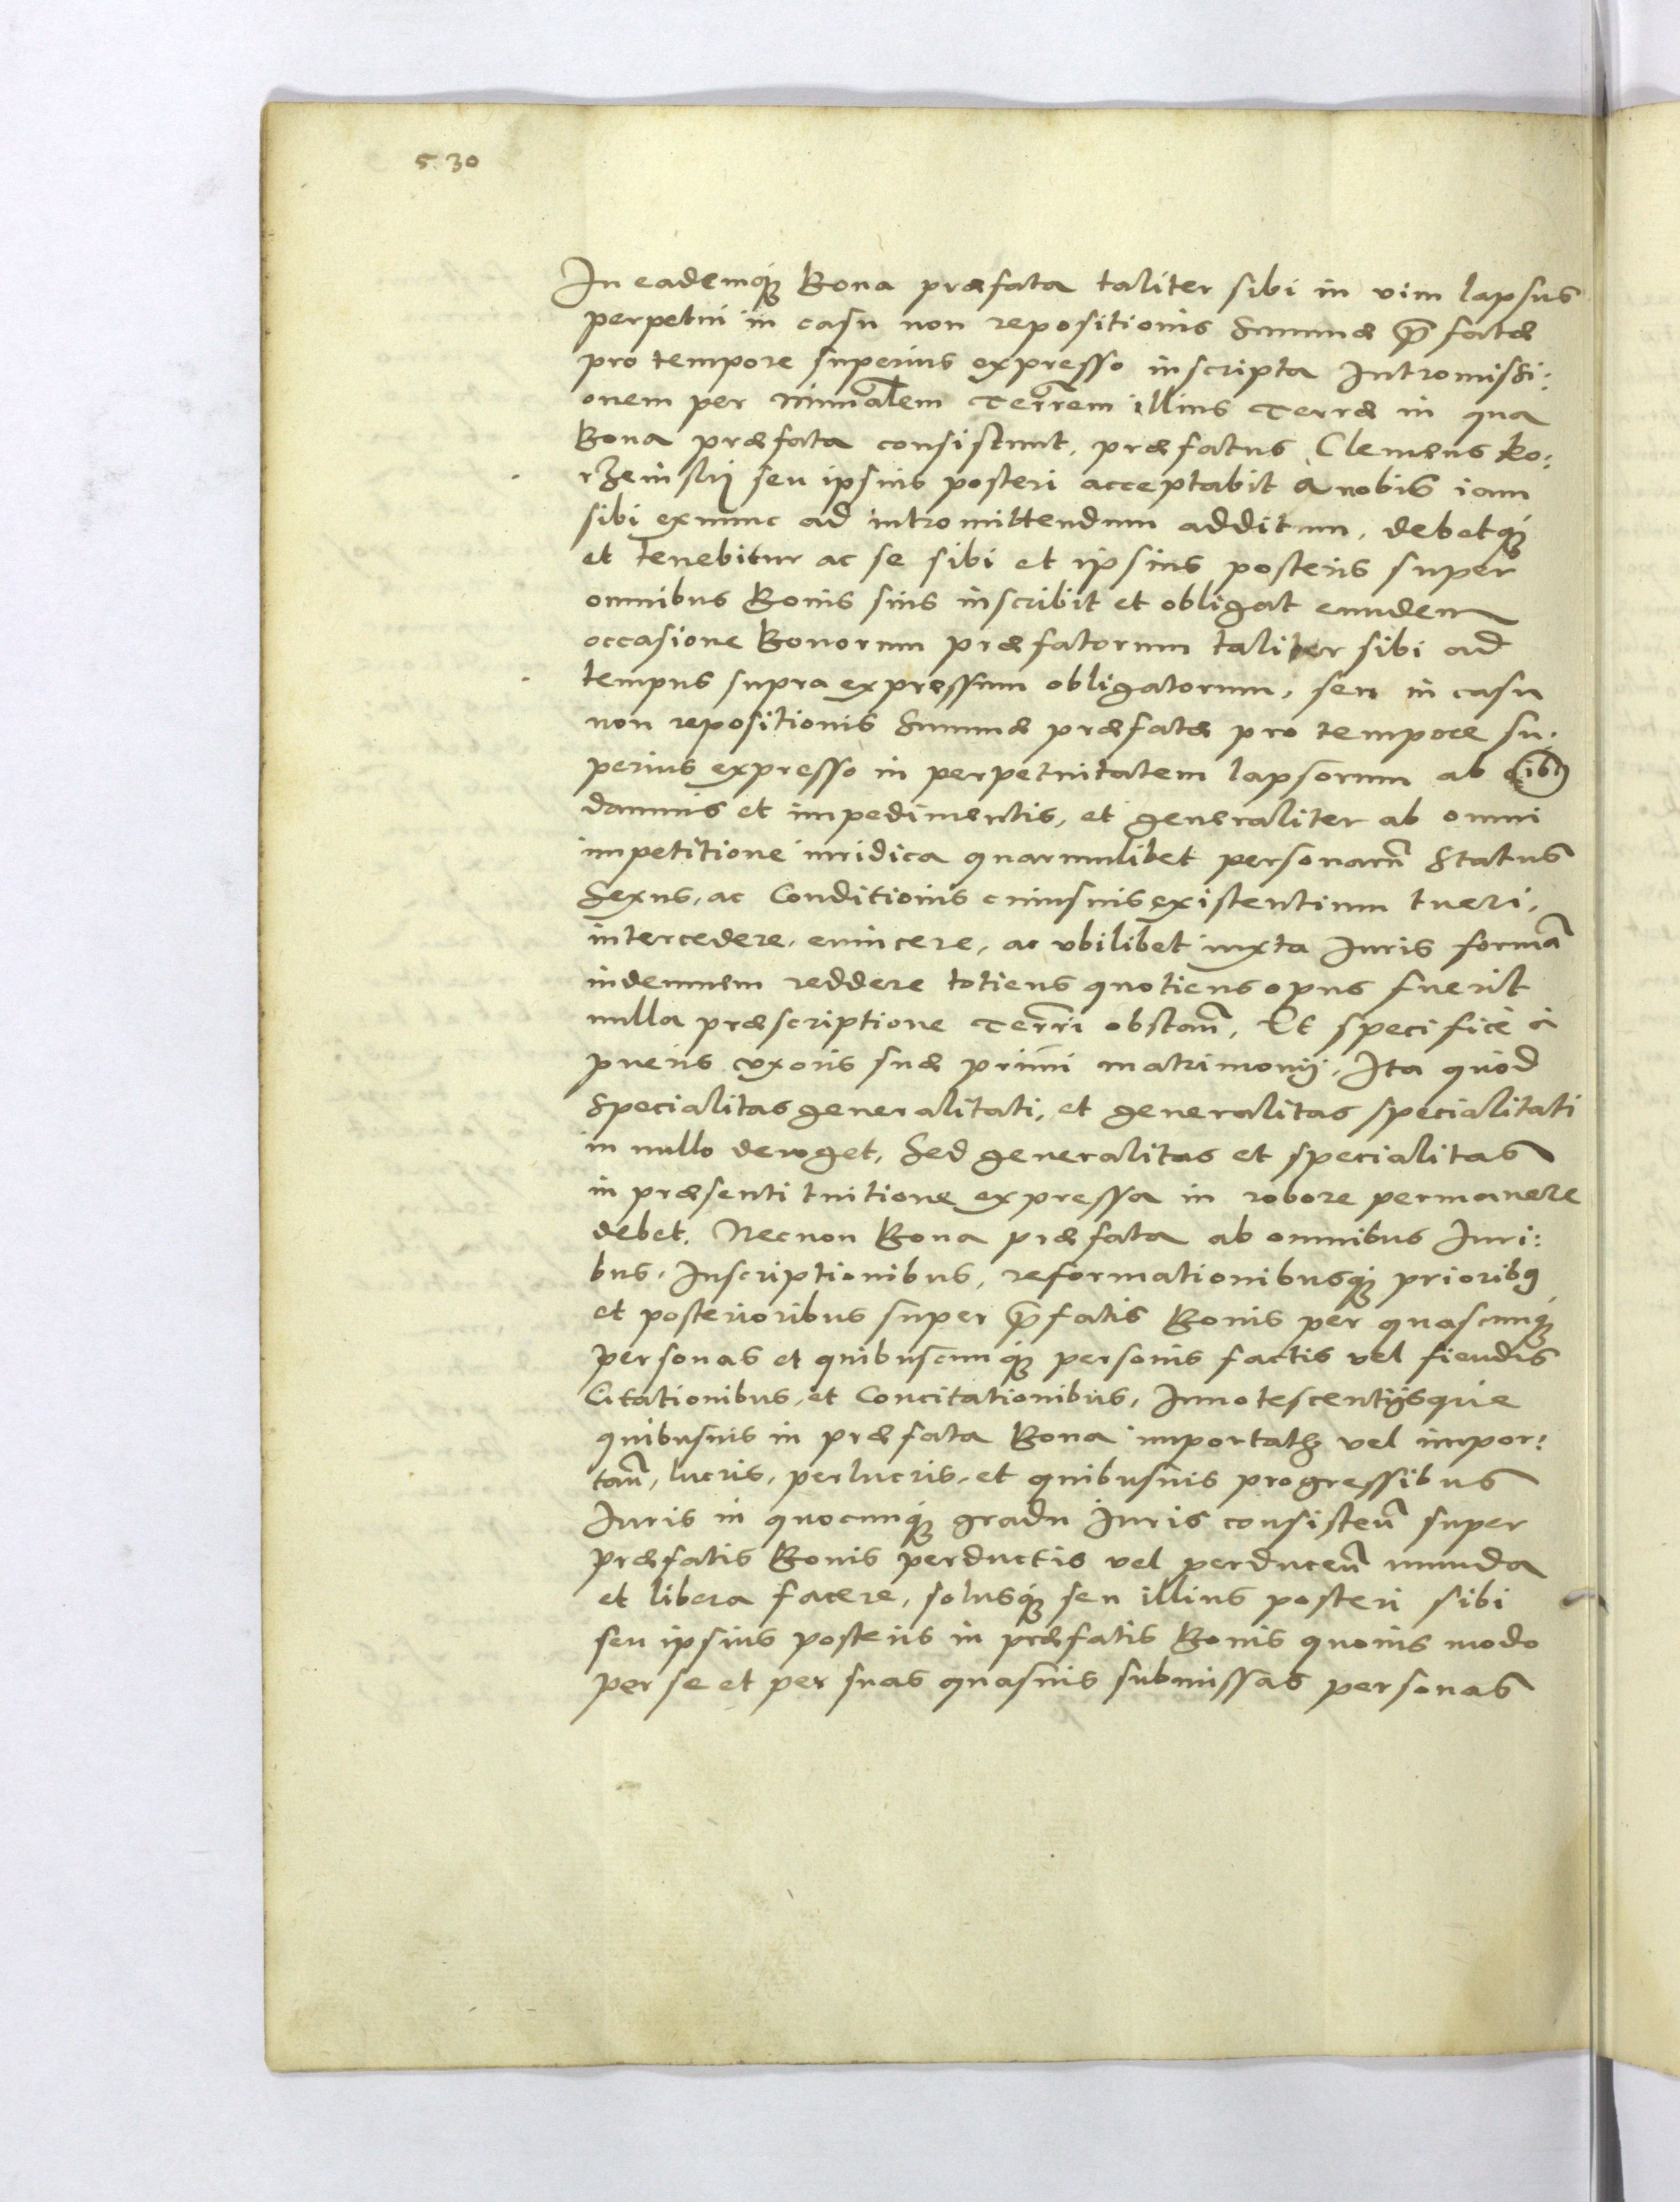 530
In eademq̃ꝫ Bona præfata taliter sibi in vim lapsus
perpetui in casu non repositionis Summæ p̃fatæ
pro tempore superius expresso inscripta Intromissi:
onem per Ministerialem Terrẽm illius Terræ in qua
Bona præfata consistunt, præfatus Clemens Ko:
rzeinskij seu ipsius posteri acceptabit a nobis iam
sibi exnunc ad intromittendum additum, debetq̃ꝫ
et tenebitur ac se sibi et ipsius posteris super
omnibus Bonis suis inscribit et obligat eundem
occasione Bonorum præfatorum taliter sibi ad
tempus supra expressum obligatorum, seu in casu
non repositionis Summæ præfatæ pro tempore su:
perius expresso in perpetuitatem lapsorum ab oĩbꝯ
damnis et impedimentis, et generaliter ab omni
impetitione iuridica quarumlibet personarũ Status
Sexus, ac Conditionis cuiusuis existentium tueri,
intercedere, euincere, ac vbilibet iuxta Juris formã
indemnem reddere totiens quotiens opus fuerit
nulla præscriptione Terrri obstañ, Et specifice à
pueris vxoris suæ primi matrimonij, Ita quòd
Specialitas generalitati, et generalitas specialitati
in nullo deroget, Sed generalitas et specialitas
in præsenti tuitione expressa in robore permanere
debet. Necnon Bona præfata ab omnibus Juri:
bus, Inscriptionibus, reformationibusq̃ꝫ prioribꝯ
et posterioribus super p̃fatis Bonis per quascunq̃ꝫ
personas et quibuscunq̃ꝫ personis factis vel fiendis
Citationibus, et Concitationibus, Innotescentijsque
quibusuis in præfata Bona importatꝫ vel impor:
tañ, lucris, perlucris, et quibusuis progressibus
Juris in quocunq̃ꝫ gradu Juris consisteñ super
præfatis Bonis perductis vel perduceñ munda
et libera facere, solusq̃ꝫ seu illius posteri sibi
seu ipsius posteris in præfatis Bonis quouis modo
per se et per suas quasuis submissas personas